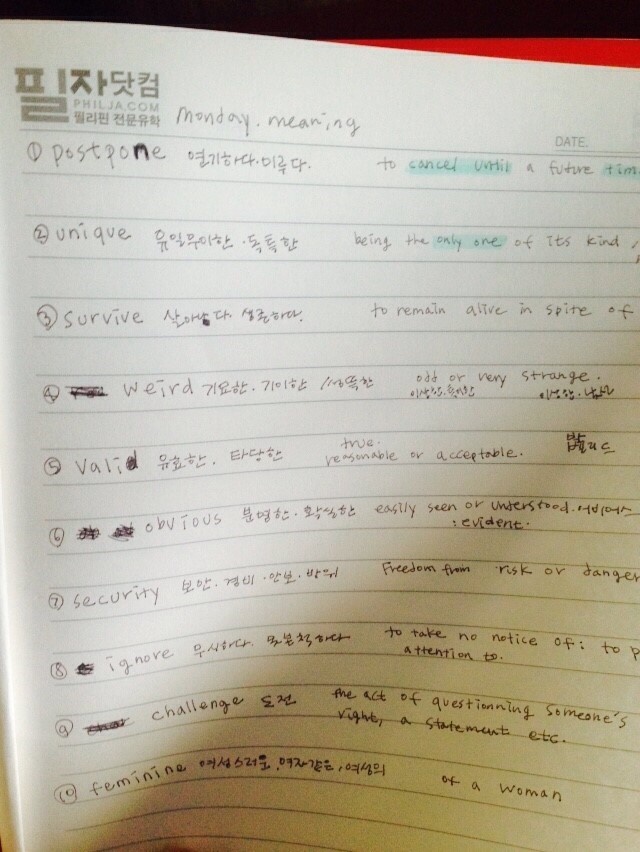 필자닷컴
PHILJA.COM
필리핀 전문유학
monday. meaning
DATE.
① postpone 연기하다.미루다. to cancel until a future tim
② unique 유일무이한.독특한 being the only one of its kind,
③ survive 살아남다. 생존하다. to remain alive in spite of
④ weird 기묘한.기이한 /섬뜩한 odd or very strange.
true.
⑤ valid 유효한. 타당한 reasonable or acceptable.
⑥ obvious 분명한.확실한 easily seen or understood.
: evident.
⑦ security 보안.경비.안보.방위 Freedom from risk or danger
⑧ ignore 무시하다. 못본척하다 to take no notice of: to p
attention to.
⑨ challenge 도전 the act of questionning someone's
right, a statement etc.
⑩ feminine 여성스러운.여자같은,여성의 of a woman